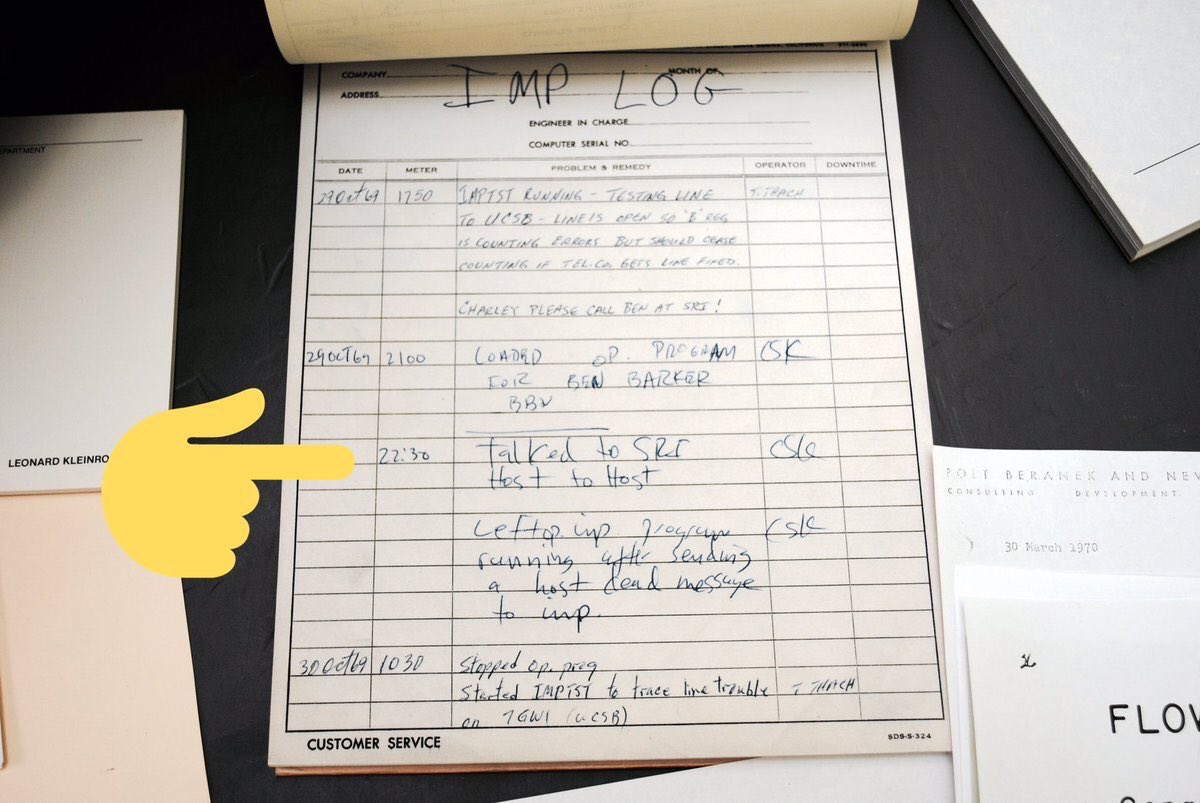 COMPANY MONTH OF
ADDRESS IMP LOG
ENGINEER IN CHARGE
COMPUTER SERIAL NO.
DATE METER PROBLEM & REMEDY OPERATOR DOWNTIME
29Oct69 1750 IMPTST RUNNING - TESTING LINE T. THACH
TO UCSB - LINE IS OPEN SO 'B' REG
IS COUNTING ERRORS BUT SHOULD CEASE
COUNTING IF TEL.CO. GETS LINE FIXED.
CHARLEY PLEASE CALL BEN AT SRI!
29OCT69 2100 LOADED OP. PROGRAM CSK
FOR BEN BARKER
BBN
22:30 Talked to SRI CSK
Host to Host
Left op. imp program CSK
running after sending
a host dead message
to imp.
30Oct69 1030 Stopped op. prog
Started IMPTST to trace line trouble T THACH
on (UCSB)
CUSTOMER SERVICE SDS-S-324
EPARTMENT
LEONARD KLEINRO
BOLT BERANEK AND NEW
CONSULTING DEVELOPMENT
30 March 1970
FLOW